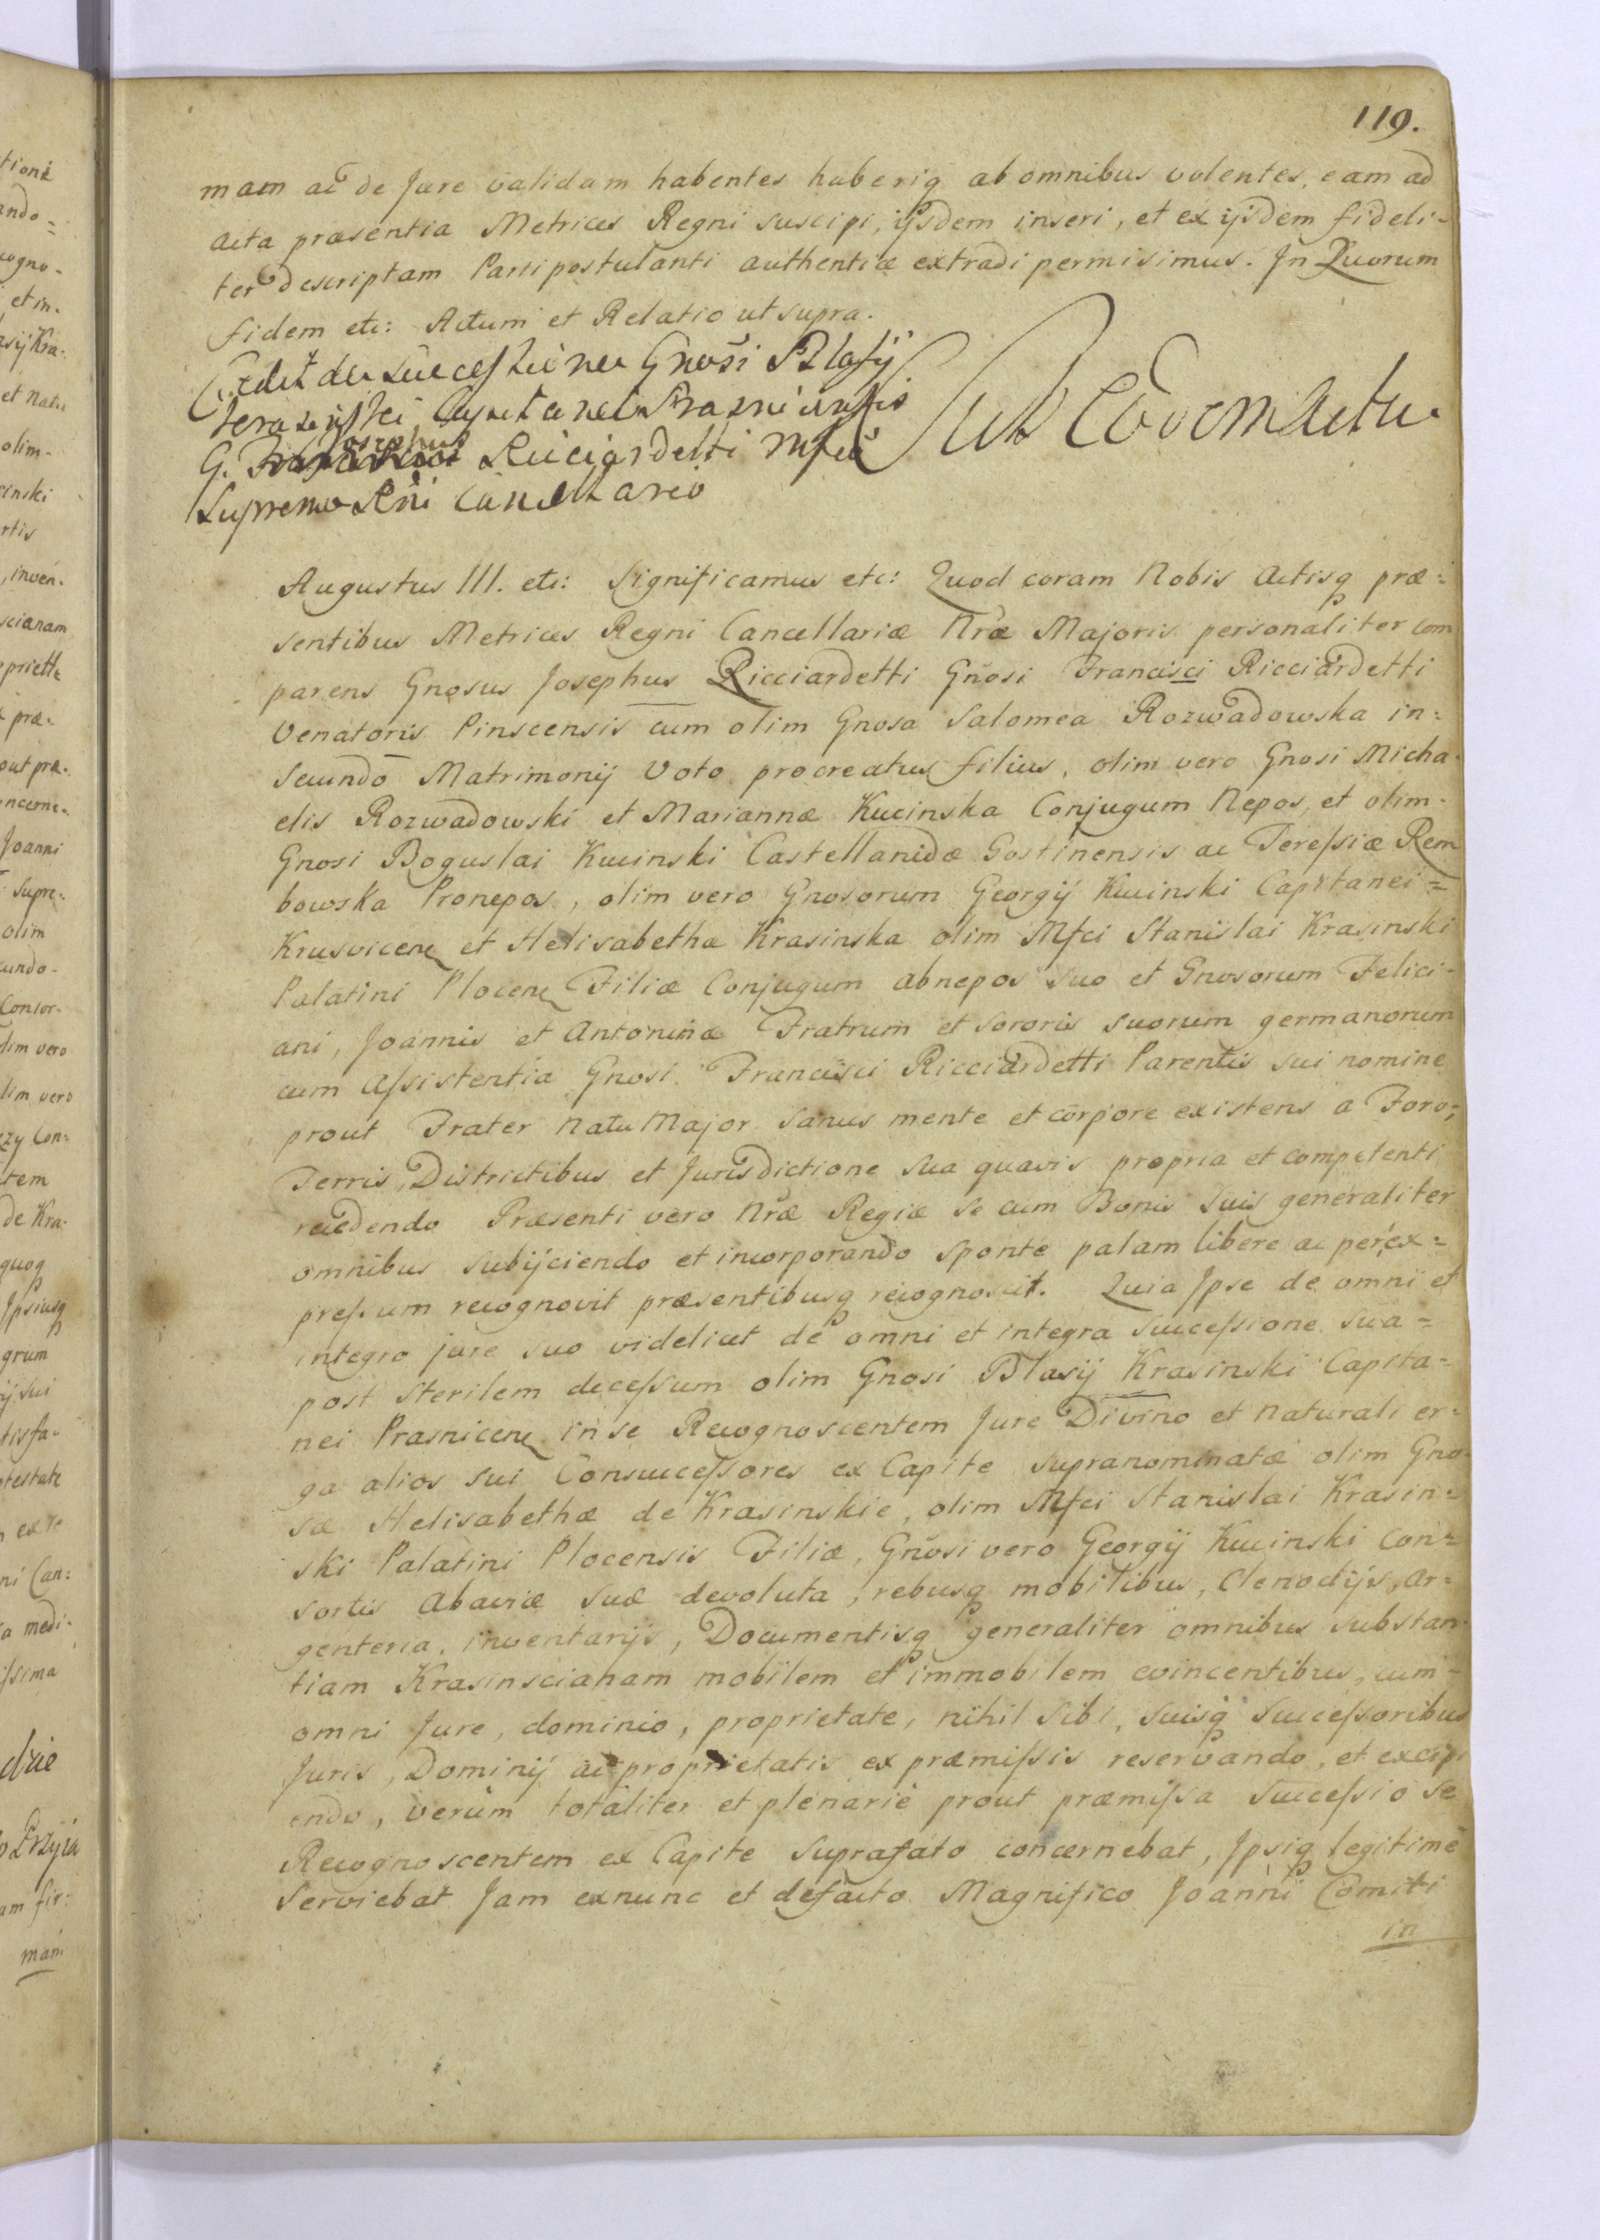 119.
mam ac de Jure validam habentes haberiq ab omnibus volentes, eam ad
acta præsentia Metrices Regni suscipi, ijsdem inseri, et ex ijsdem fideli-
ter descriptam Parti postulanti authentice extradi permisimus. Jn Quorum
fidem etc: Actum et Relatio ut supra.
Cedit de Successione Gnosi Blasij
Krasinski Capitanei Prasnicensis
G. Josephus Ricciardetti Mfco
Supremo Rni Cancellario
Sub Eodem Actu
Augustus III. etc: Significamus etc: Quod coram Nobis Actisq præ-
sentibus Metrices Regni Cancellariæ Nræ Majoris personaliter com
parens Gnosus Josephus Ricciardetti Gnosi Francisci Ricciardetti
Venatoris Pinscensis cum olim Gnosa Salomea Rozwadowska in-
secundo Matrimonij Voto procreatus filius, olim vero Gnosi Micha-
elis Rozwadowski et Mariannæ Kucinska Conjugum Nepos, et olim-
Gnosi Boguslai Kucinski Castellanidæ Gostinensis ac Teressiæ Rem
bowska Pronepos, olim vero Gnosorum Georgij Kucinski Capitanei=
Krusvicen et Helisabethæ Krasinska olim Mfci Stanislai Krasinski
Palatini Plocen Filiæ Conjugum abnepos suo et Gnosorum Felici-
ani, Joannis et Antoninæ Fratrum et Sororis suorum germanorum
cum Assistentia Gnosi Francisci Ricciardetti Parentis sui nomine
prout Frater Natu Major sanus mente et corpore existens a Foro,
Terris, Districtibus et Jurisdictione sua quavis propria et competenti
recedendo Præsenti vero Nræ Regiæ se cum Bonis suis generaliter
omnibus subijciendo et incorporando sponte palam libere ac per ex=
pressum recognovit præsentibusq recognoscit. Quia Jpse de omni et
integro jure suo videlicet de omni et integra Successione sua=
post sterilem decessum olim Gnosi Blasij Krasinski Capita-
nei Prasnicen in se Recognoscentem Jure Divino et Naturali er-
ga alios sui Consuccessores ex Capite supranominatæ olim Gno-
sæ Helisabethæ de Krasinskie, olim Mfci Stanislai Krasin=
ski Palatini Plocensis Filiæ, Gnosi vero Georgij Kucinski Con=
sortis Abaviæ suæ devoluta, rebusq mobilibus, Clenodijs, Ar=
genteria, inventarijs, Documentisq generaliter omnibus substan-
tiam Krasinscianam mobilem et immobilem evincentibus, cum-
omni Jure, dominio, proprietate, nihil sibi, suisq Successoribus
Juris, Dominij ac proprietatis ex præmissis reservando, et excipi
endo, verum totaliter et plenarie prout præmissa Successio se
Recognoscentem ex Capite suprafato concernebat, Jpsiq legitime
serviebat Jam exnunc et defacto Magnifico Joanni Comiti
in